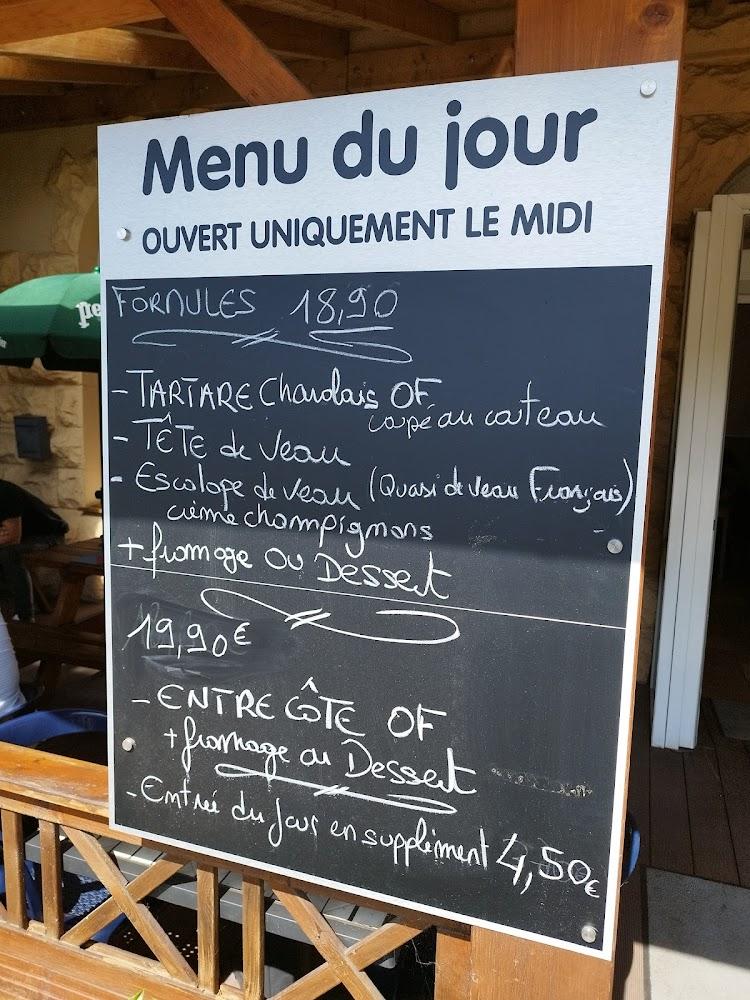 Menu du jour
OUVERT UNIQUEMENT LE MIDI
FORMULES 18,90
- TARTARE Charolais OF
coupé au couteau
- TÊTE de veau
- Escalope de veau (Quasi de veau Français)
crème champignons
+ fromage ou Dessert
19,90€
- ENTRE CÔTE OF
+ fromage ou Dessert
- Entrée du jour en supplément 4,50€
pe